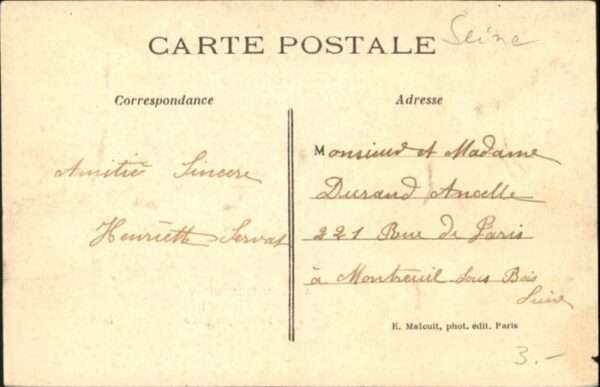 CARTE POSTALE Seine
Correspondance
Adresse
Amitié Sincère
Henriette Servat
Monsieur et Madame
Durand Ancelle
221 Rue de Paris
à Montreuil sous Bois
Seine
E. Malcuit, phot. édit. Paris
3.-